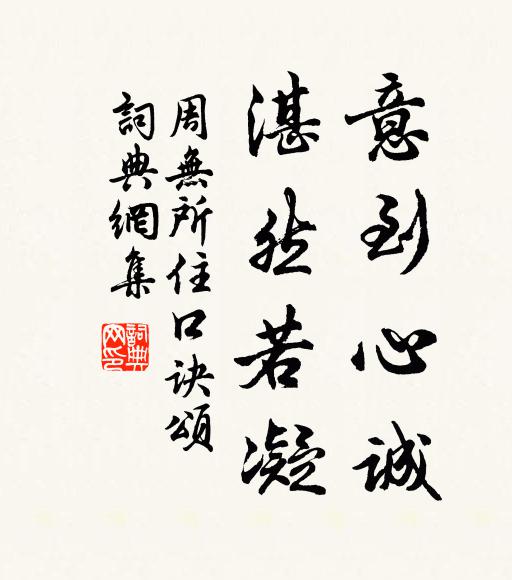 意到心诚
湛然若凝
周無所住口诀頌
詞典網集
詞典网印